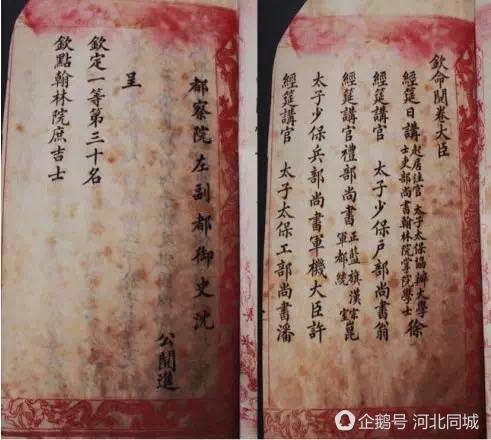 欽命閱卷大臣
經筵日講起居注官 太子太保協辦大學士吏部尚書翰林院掌院學士徐
經筵講官 太子少保戶部尚書翁
經筵講官禮部尚書正藍旗漢軍都統宗室崑
太子少保兵部尚書軍機大臣許
經筵講官 太子太保工部尚書潘
都察院左副都御史沈
公閱進
呈
欽定一等第三十名
欽點翰林院庶吉士
企鹅号 河北同城